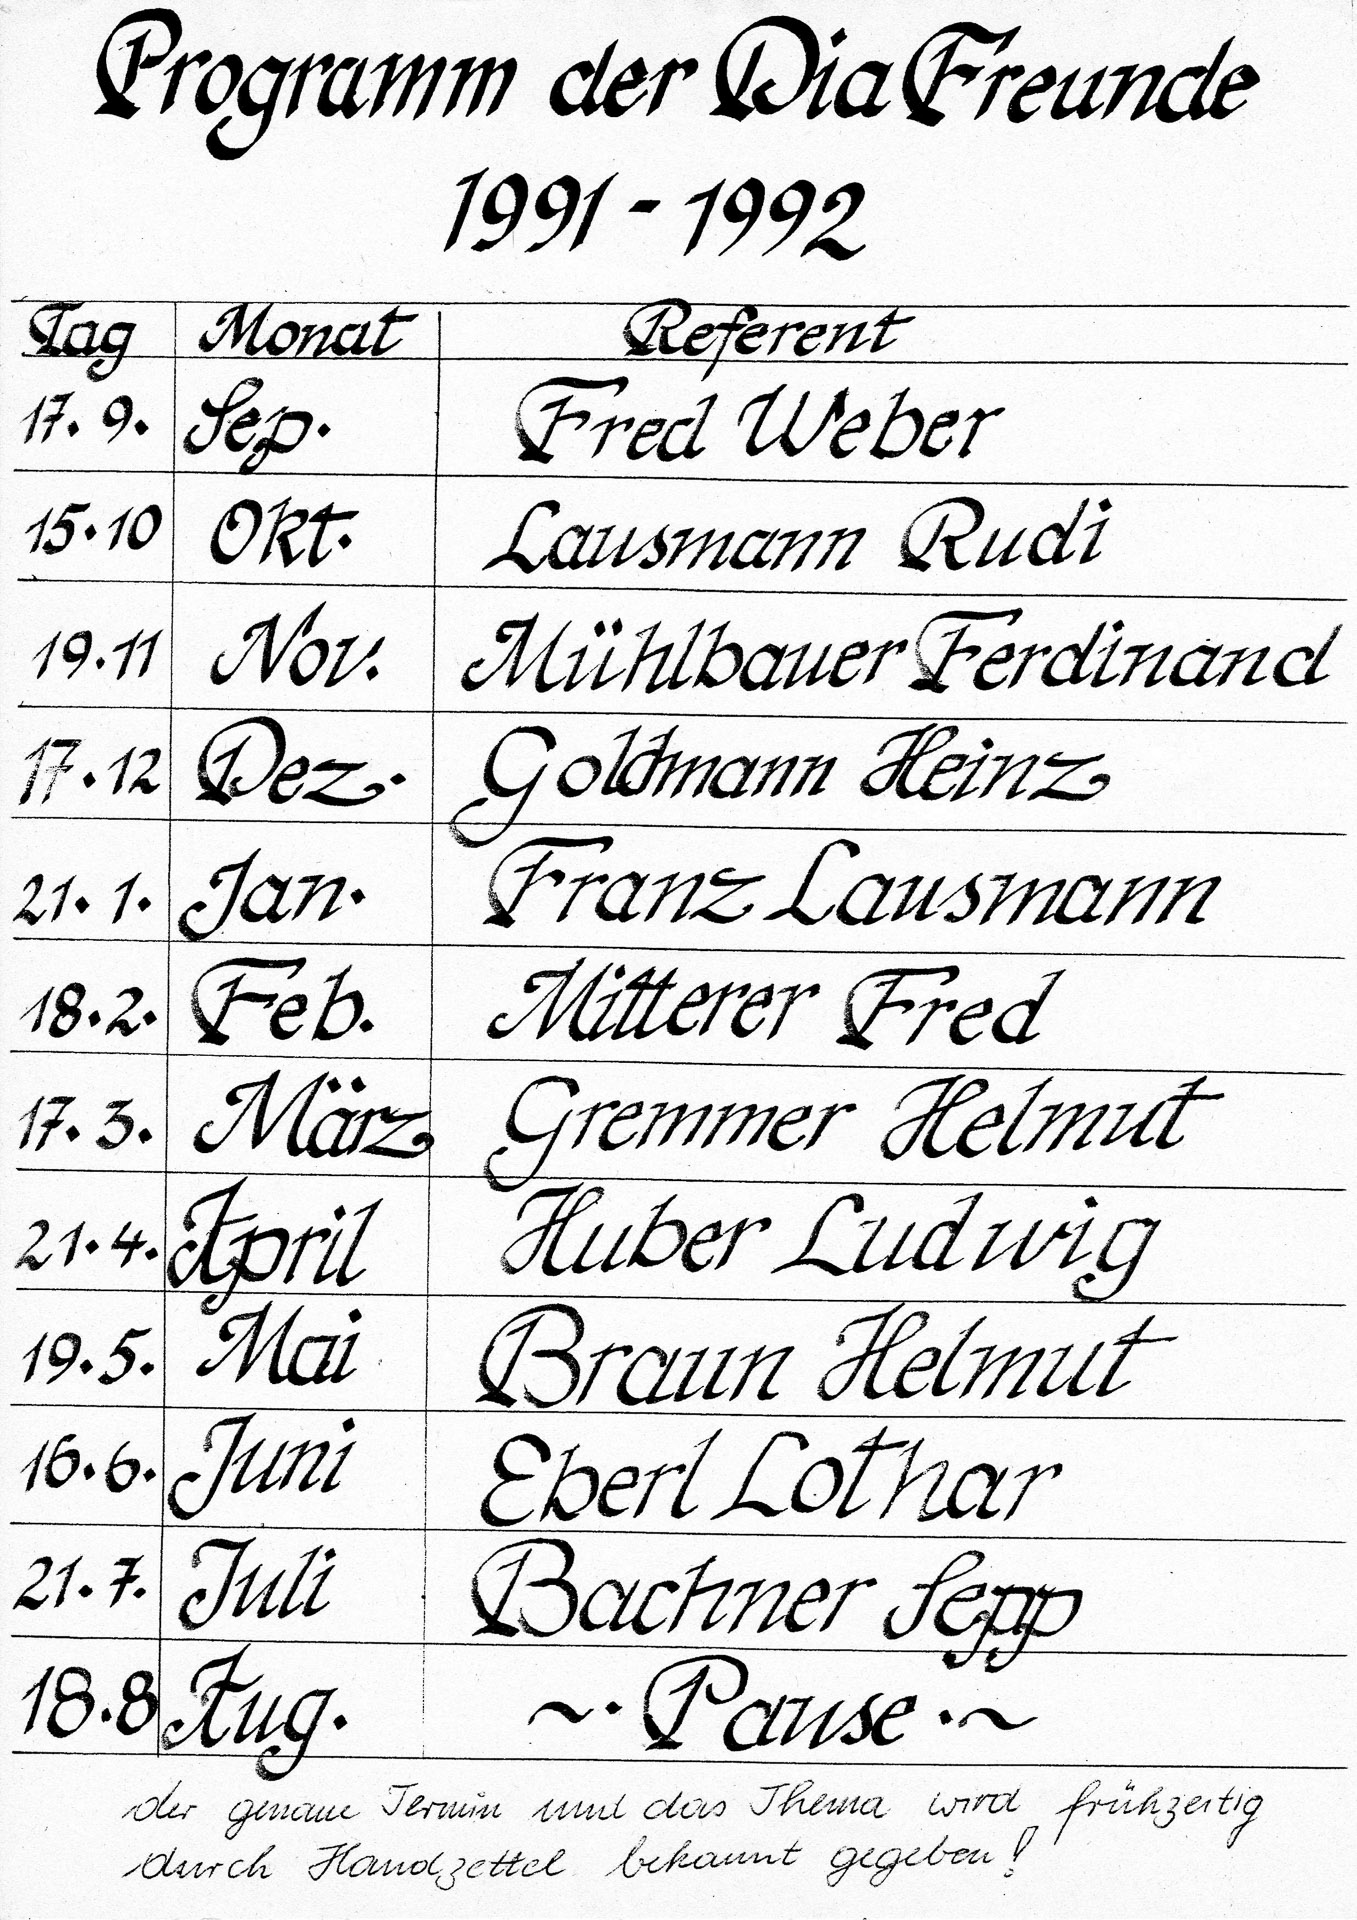 Programm der Dia Freunde
1991 - 1992
Tag Monat Referent
17. 9. Sep. Fred Weber
15.10 Okt. Lausmann Rudi
19.11 Nov. Mühlbauer Ferdinand
17.12 Dez. Goldmann Heinz
21. 1. Jan. Franz Lausmann
18.2. Feb. Mitterer Fred
17. 3. März Gremmer Helmut
21.4. April Huber Ludwig
19.5. Mai Braun Helmut
16.6. Juni Eberl Lothar
21.7. Juli Bachner Sepp
18.8 Aug. ~. Pause .~
der genaue Termin und das Thema wird frühzeitig
durch Handzettel bekannt gegeben!